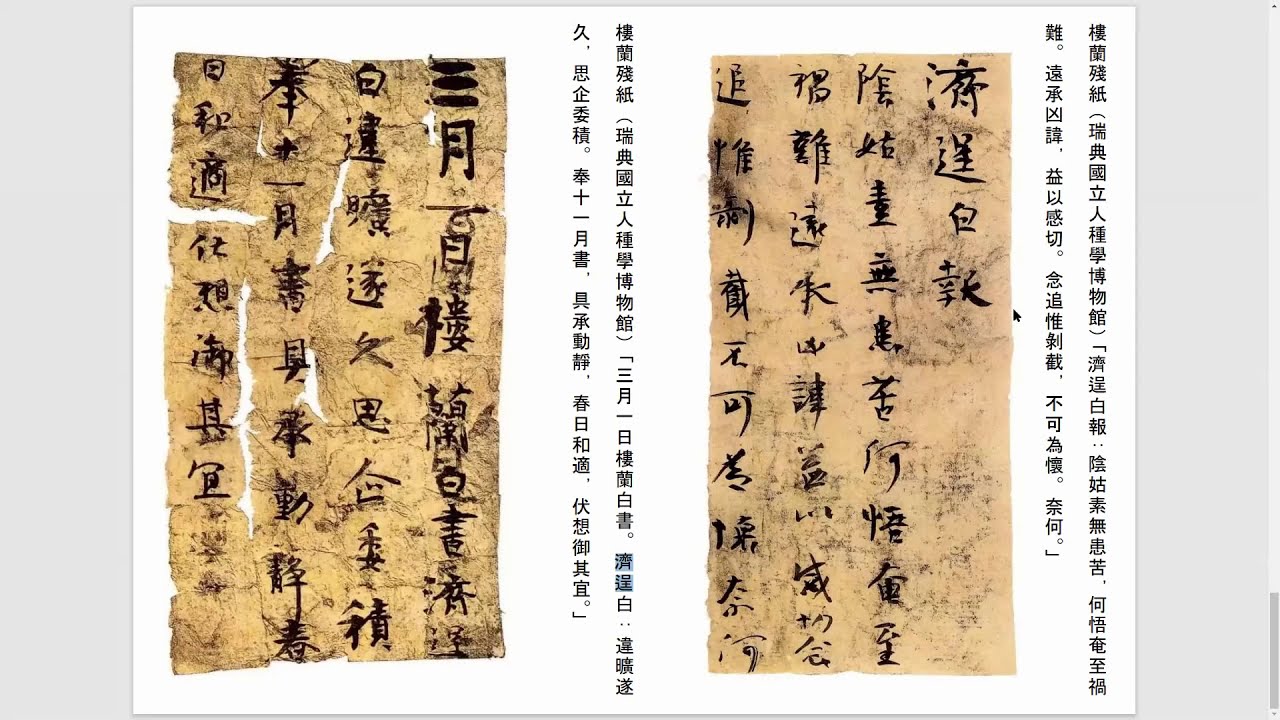 樓蘭殘紙（瑞典國立人種學博物館）「濟逞白報：陰姑素無患苦，何悟奄至禍
難。遠承凶諱，益以感切。念追惟剝截，不可為懷。奈何。」
濟逞白報
陰姑素無患苦何悟奄至
禍難遠承凶諱益以感切念
追惟剝截不可為懷奈何
樓蘭殘紙（瑞典國立人種學博物館）「三月一日樓蘭白書。濟逞白：違曠遂
久，思企委積。奉十一月書，具承動靜，春日和適，伏想御其宜。」
三月一日樓蘭白書濟逞
白違曠遂久思企委積
奉十一月書具承動靜春
日和適伏想御其宜